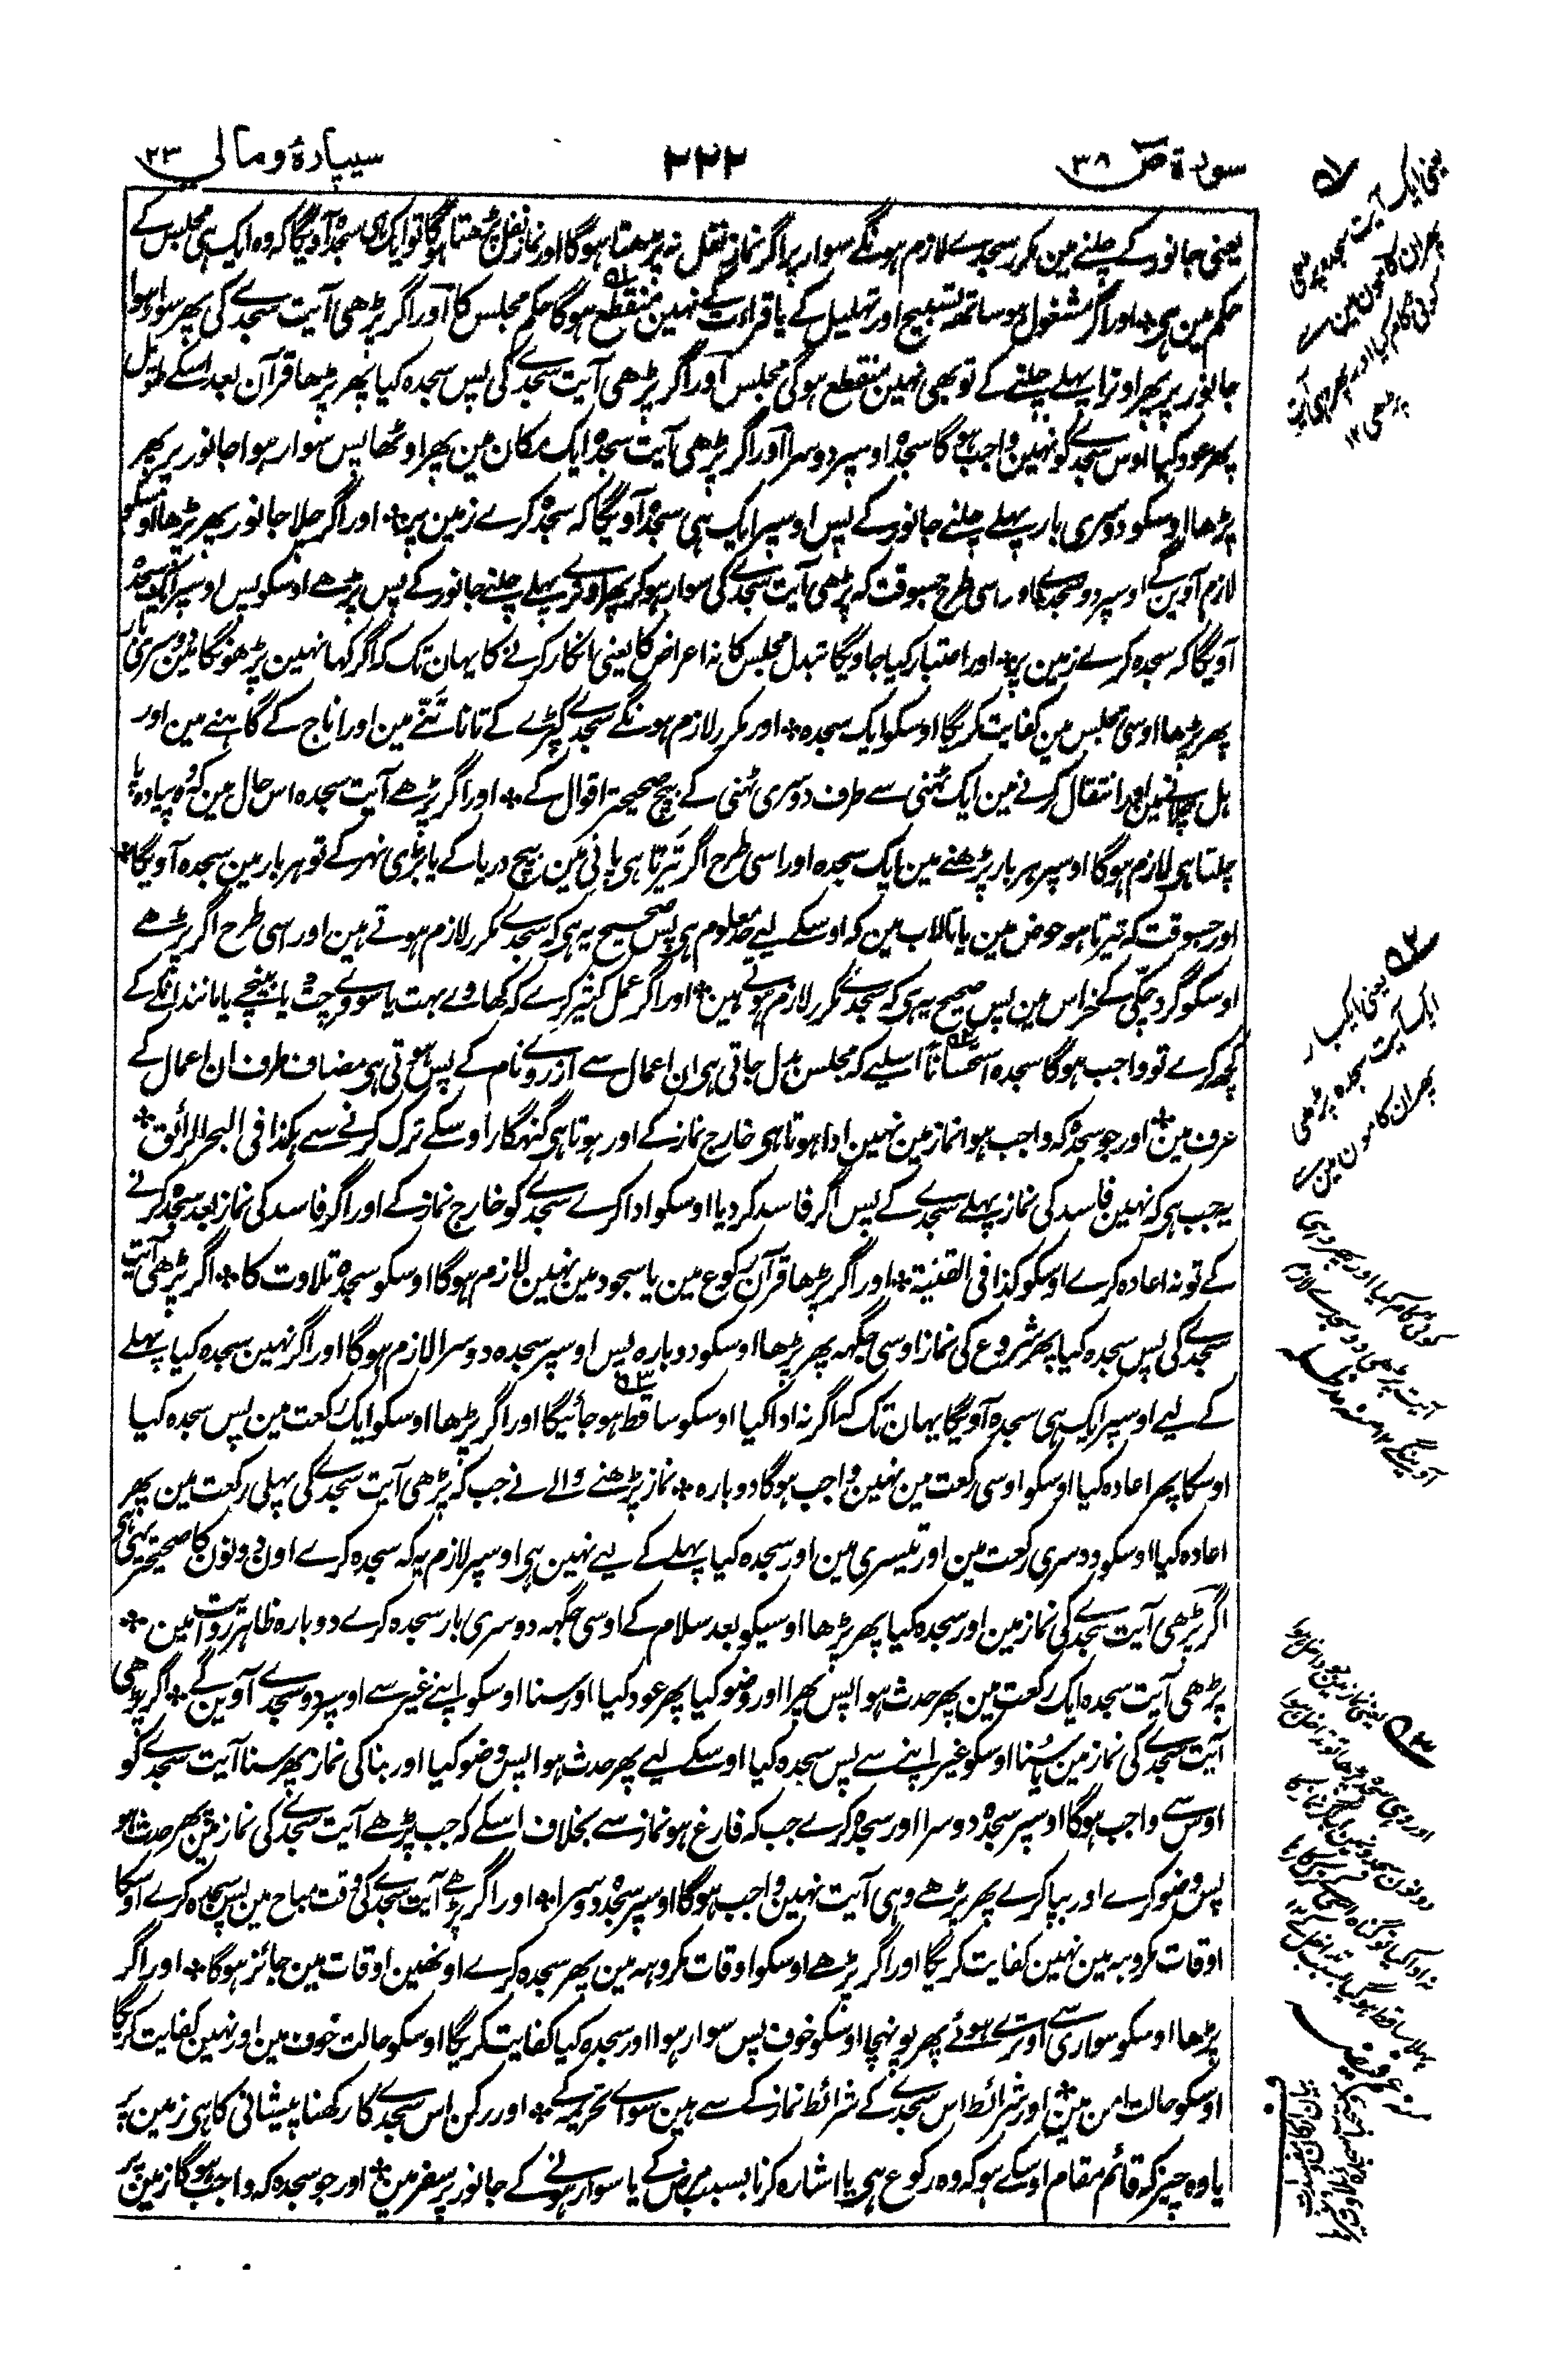 سورۃ ص ٣٨
٢٢٢
سیپارۂ ومالی ٢٣
یعنی جانور کے چلنے مین مکرر سجدے لازم ہونگے سوار پر اگر نماز نفل نہ پڑھتا ہوگا اور نماز نفل پڑھتا ہوگا تو ایک ہی سجدہ آویگا کہ وہ ایک ہی مجلس کے
حکم مین ہی * اور اگر مشغول ہو ساتھہ تسبیح اور تہلیل کے یا قراءت کے نہین منقطع ہوگا حکم مجلس کا اور اگر پڑھی آیت سجدے کی پھر سوار ہوا
جانور پر پھر اوترا پہلے چلنے کے تو بھی نہین منقطع ہوگی مجلس اور اگر پڑھی آیت سجدے کی پس سجدہ کیا پھر پڑھا قرآن بعد اسکے طویل
پھر عود کیا اوس سجدے کو نہین واجب ہوگا سجدہ اوسپر دوسرا اور اگر پڑھی آیت سجدہ ایک مکان مین پھر اوٹھا پس سوار ہوا جانور پر پھر
پڑھا اوسکو دوسری بار پہلے چلنے جانور کے پس اوسپر ایک ہی سجدہ آویگا کہ سجدہ کرے زمین پر * اور اگر چلا جانور پھر پڑھا اوسکو
لازم آوین گے اوسپر دو سجدے اور اسی طرح جسوقت کہ پڑھی آیت سجدے کی سوار ہوکر پھر اوترے پہلے چلنے جانور کے پس پڑھے اوسکو پس اوسپر ایک سجدہ
آویگا کہ سجدہ کرے زمین پر * اور اعتبار کیا جاویگا تبدل مجلس کا نہ اعراض کا یعنی انکار کرنے کا یہان تک کہ اگر کہا نہین پڑھونگا مین دوسری بار
پھر پڑھا اوسی مجلس مین کفایت کریگا اوسکو ایک سجدہ * اور مکرر لازم ہونگے سجدے کپڑے کے تانا تننے مین اور اناج کے گاہنے مین اور
ہل چلانے مین اور انتقال کرنے مین ایک ٹہنی سے طرف دوسری ٹہنی کے بیچ صحیحتر اقوال کے * اور اگر پڑھے آیت سجدہ اس حال مین کہ وہ پیادہ پا
چلتا ہی لازم ہوگا اوسپر ہر بار پڑھنے مین ایک سجدہ اور اسی طرح اگر تیرتا ہی پانی مین بیچ دریا کے یا بڑی نہر کے تو ہر بار مین سجدہ آویگا *
اور جسوقت کہ تیرتا ہو حوض مین یا تالاب مین کہ اوسکے لیے حد معلوم ہی پس صحیح یہ ہی کہ سجدے مکرر لازم ہوتے ہین اور اسی طرح اگر پڑھے
اوسکو گرد چکّی کے خراس مین پس صحیح یہ ہی کہ سجدے مکرر لازم ہوتے ہین * اور اگر عمل کثیر کرے کہ کھاوے بہت یا سووے چت یا بیچے یا مانند انکے کے
کچھ کرے تو واجب ہوگا سجدہ استحساناً اسلیے کہ مجلس بدل جاتی ہی ان اعمال سے از روے نام کے پس ہوتی ہی مضاف طرف ان اعمال کے
عرف مین * اور جو سجدہ کہ واجب ہوا نماز مین نہین ادا ہوتا ہی خارج نماز کے اور ہوتا ہی گنہگار اوسکے ترک کرنے سے ہکذا فی البحر الرائق *
یہ جب ہی کہ نہین فاسد کی نماز پہلے سجدے کے پس اگر فاسد کر دیا اوسکو ادا کرے سجدے کو خارج نماز کے اور اگر فاسد کی نماز بعد سجدہ کرنے
کے تو نہ اعادہ کرے اوسکو کذا فی القنیۃ * اور اگر پڑھا قرآن رکوع مین یا سجود مین نہین لازم ہوگا اوسکو سجدہ تلاوت کا * اگر پڑھی آیت
سجدے کی پس سجدہ کیا پھر شروع کی نماز اوسی جگہہ پھر پڑھا اوسکو دوبارہ پس اوسپر سجدہ دوسرا لازم ہوگا اور اگر نہین سجدہ کیا پہلے
کے لیے اوسپر ایک ہی سجدہ آویگا یہان تک کہ اگر نہ ادا کیا اوسکو ساقط ہو جائیگا اور اگر پڑھا اوسکو ایک رکعت مین پس سجدہ کیا
اوسکا پھر اعادہ کیا اوسکو اوسی رکعت مین نہین واجب ہوگا دوبارہ * نماز پڑھنے والے نے جب کہ پڑھی آیت سجدے کی پہلی رکعت مین پھر
اعادہ کیا اوسکو دوسری رکعت مین اور تیسری مین اور سجدہ کیا پہلے کے لیے نہین ہی اوسپر لازم یہ کہ سجدہ کرے اون دونون کا صحیحتر یہی ہی
اگر پڑھی آیت سجدے کی نماز مین اور سجدہ کیا پھر پڑھا اوسیکو بعد سلام کے اوسی جگہہ دوسری بار سجدہ کرے دوبارہ ظاہر روایت مین *
پڑھی آیت سجدہ ایک رکعت مین پھر حدث ہوا پس پھرا اور وضو کیا پھر عود کیا اور سنا اوسکو اپنے غیر سے اوسپر دو سجدے آوین گے * اگر پڑھی
آیت سجدے کی نماز مین یا سُنا اوسکو غیر اپنے سے پس سجدہ کیا اوسکے لیے پھر حدث ہوا پس وضو کیا اور بنا کی نماز پھر سنا آیت سجدے کو
اوس سے واجب ہوگا اوسپر سجدہ دوسرا اور سجدہ کرے جب کہ فارغ ہو نماز سے بخلاف اسکے کہ جب پڑھے آیت سجدے کی نماز مین پھر حدث ہو
پس وضو کرے اور بنا کرے پھر پڑھے وہی آیت نہین واجب ہوگا اوسپر سجدہ دوسرا * اور اگر پڑھے آیت سجدے کی وقت مباح مین پس سجدہ کرے اوسکا
اوقات مکروہہ مین نہین کفایت کریگا اور اگر پڑھے اوسکو اوقات مکروہہ مین پھر سجدہ کرے اونھین اوقات مین جائز ہوگا * اور اگر
پڑھا اوسکو سواری سے اوترے ہوئے پھر پونہچا اوسکو خوف پس سوار ہوا اور سجدہ کیا کفایت کریگا اوسکو حالت خوف مین اور نہین کفایت کریگا
اوسکو حالت امن مین * اور شرائط اس سجدے کے شرائط نماز کے سے ہین سواے تحریمہ کے * اور رکن اس سجدے کا رکھنا پیشانی کا ہی زمین پر
یا وہ چیز کہ قائم مقام اوسکے ہو کہ وہ رکوع ہی یا اشارہ کرنا بسبب مرض کے یا سوار ہونے کے جانور پر سفر مین * اور جو سجدہ کہ واجب ہوگا زمین پر
ا
یعنی ایک آیت سجدہ پڑھی
پھر ان کامون مین سے
کوئی کام کیا اور پھر وہی آیت
پڑھی ١٢
٢
یعنی ایکبار
ایک آیت سجدہ پڑھی
پھر ان کامون مین سے
کوئی کام کیا اور پھر وہی
آیت پڑھی دو سجدے لازم
آوینگے ١٢
٣
یعنی نماز مین داخل ہوا
اور وہی سجدہ پڑھا تو تداخل ہوا
دونون سجدون مین
نہ ادا کیا تو گناہ
پہلا ساقط ہوگیا بسبب تداخل کے